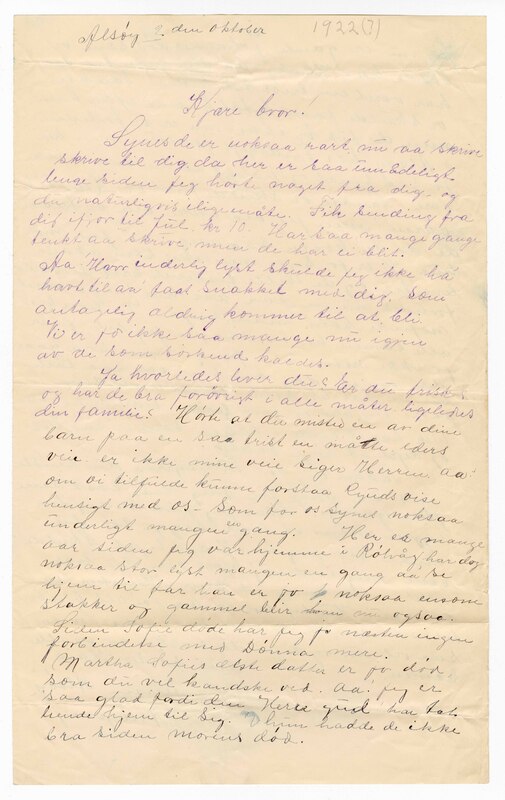 Alsøy 2 den Oktober 1922(?)
Kjære bror!
Synes de er noksaa rart nu aa skrive
skrive til dig, da her er saa umådeligt
lenge siden jeg hørte noget fra dig og
du naturligvis ligemåte. Fik sending fra
dig ifjor til Jul. kr 10. Har saa mange gange
tenkt aa skrive, men de har ei blit.
Aa Hvor inderlig lyst skulde jeg ikke ha
havt til aa faat snakket med dig, som
antagelig aldrig kommer til at bli
Vi er jo ikke saa mange nu igjen
av de som søskend kaldes.
Ja hvorledes lever du? Er du frisk
og har de bra forøvrigt i alle måter ligeledes
din familie? Hørte at du misted en av dine
barn paa en saa trist en måtte, eders
veie er ikke mine veie siger Herren, aa
om vi tilfulde kunne forstaa Gjuds vise
hensigt med os. Som for os synes noksaa
underligt mangen en gang. Her er mange
aar siden jeg var hjemme i Rølvåg, har dog
noksaa stor lyst mangen en gang aa se
hjem til far han er jo noksaa ensom
stakker og gammel blir han nu ogsaa.
Siden Sofie døde har jeg jo nesten ingen
forbindelse med Dønna mere.
Martha Sofies elste datter er jo død,
som du vel kandske ved. aa jeg er
saa glad fordi den Herre gud har tat
hende hjem til sig. hun hadde de ikke
bra siden morens død.